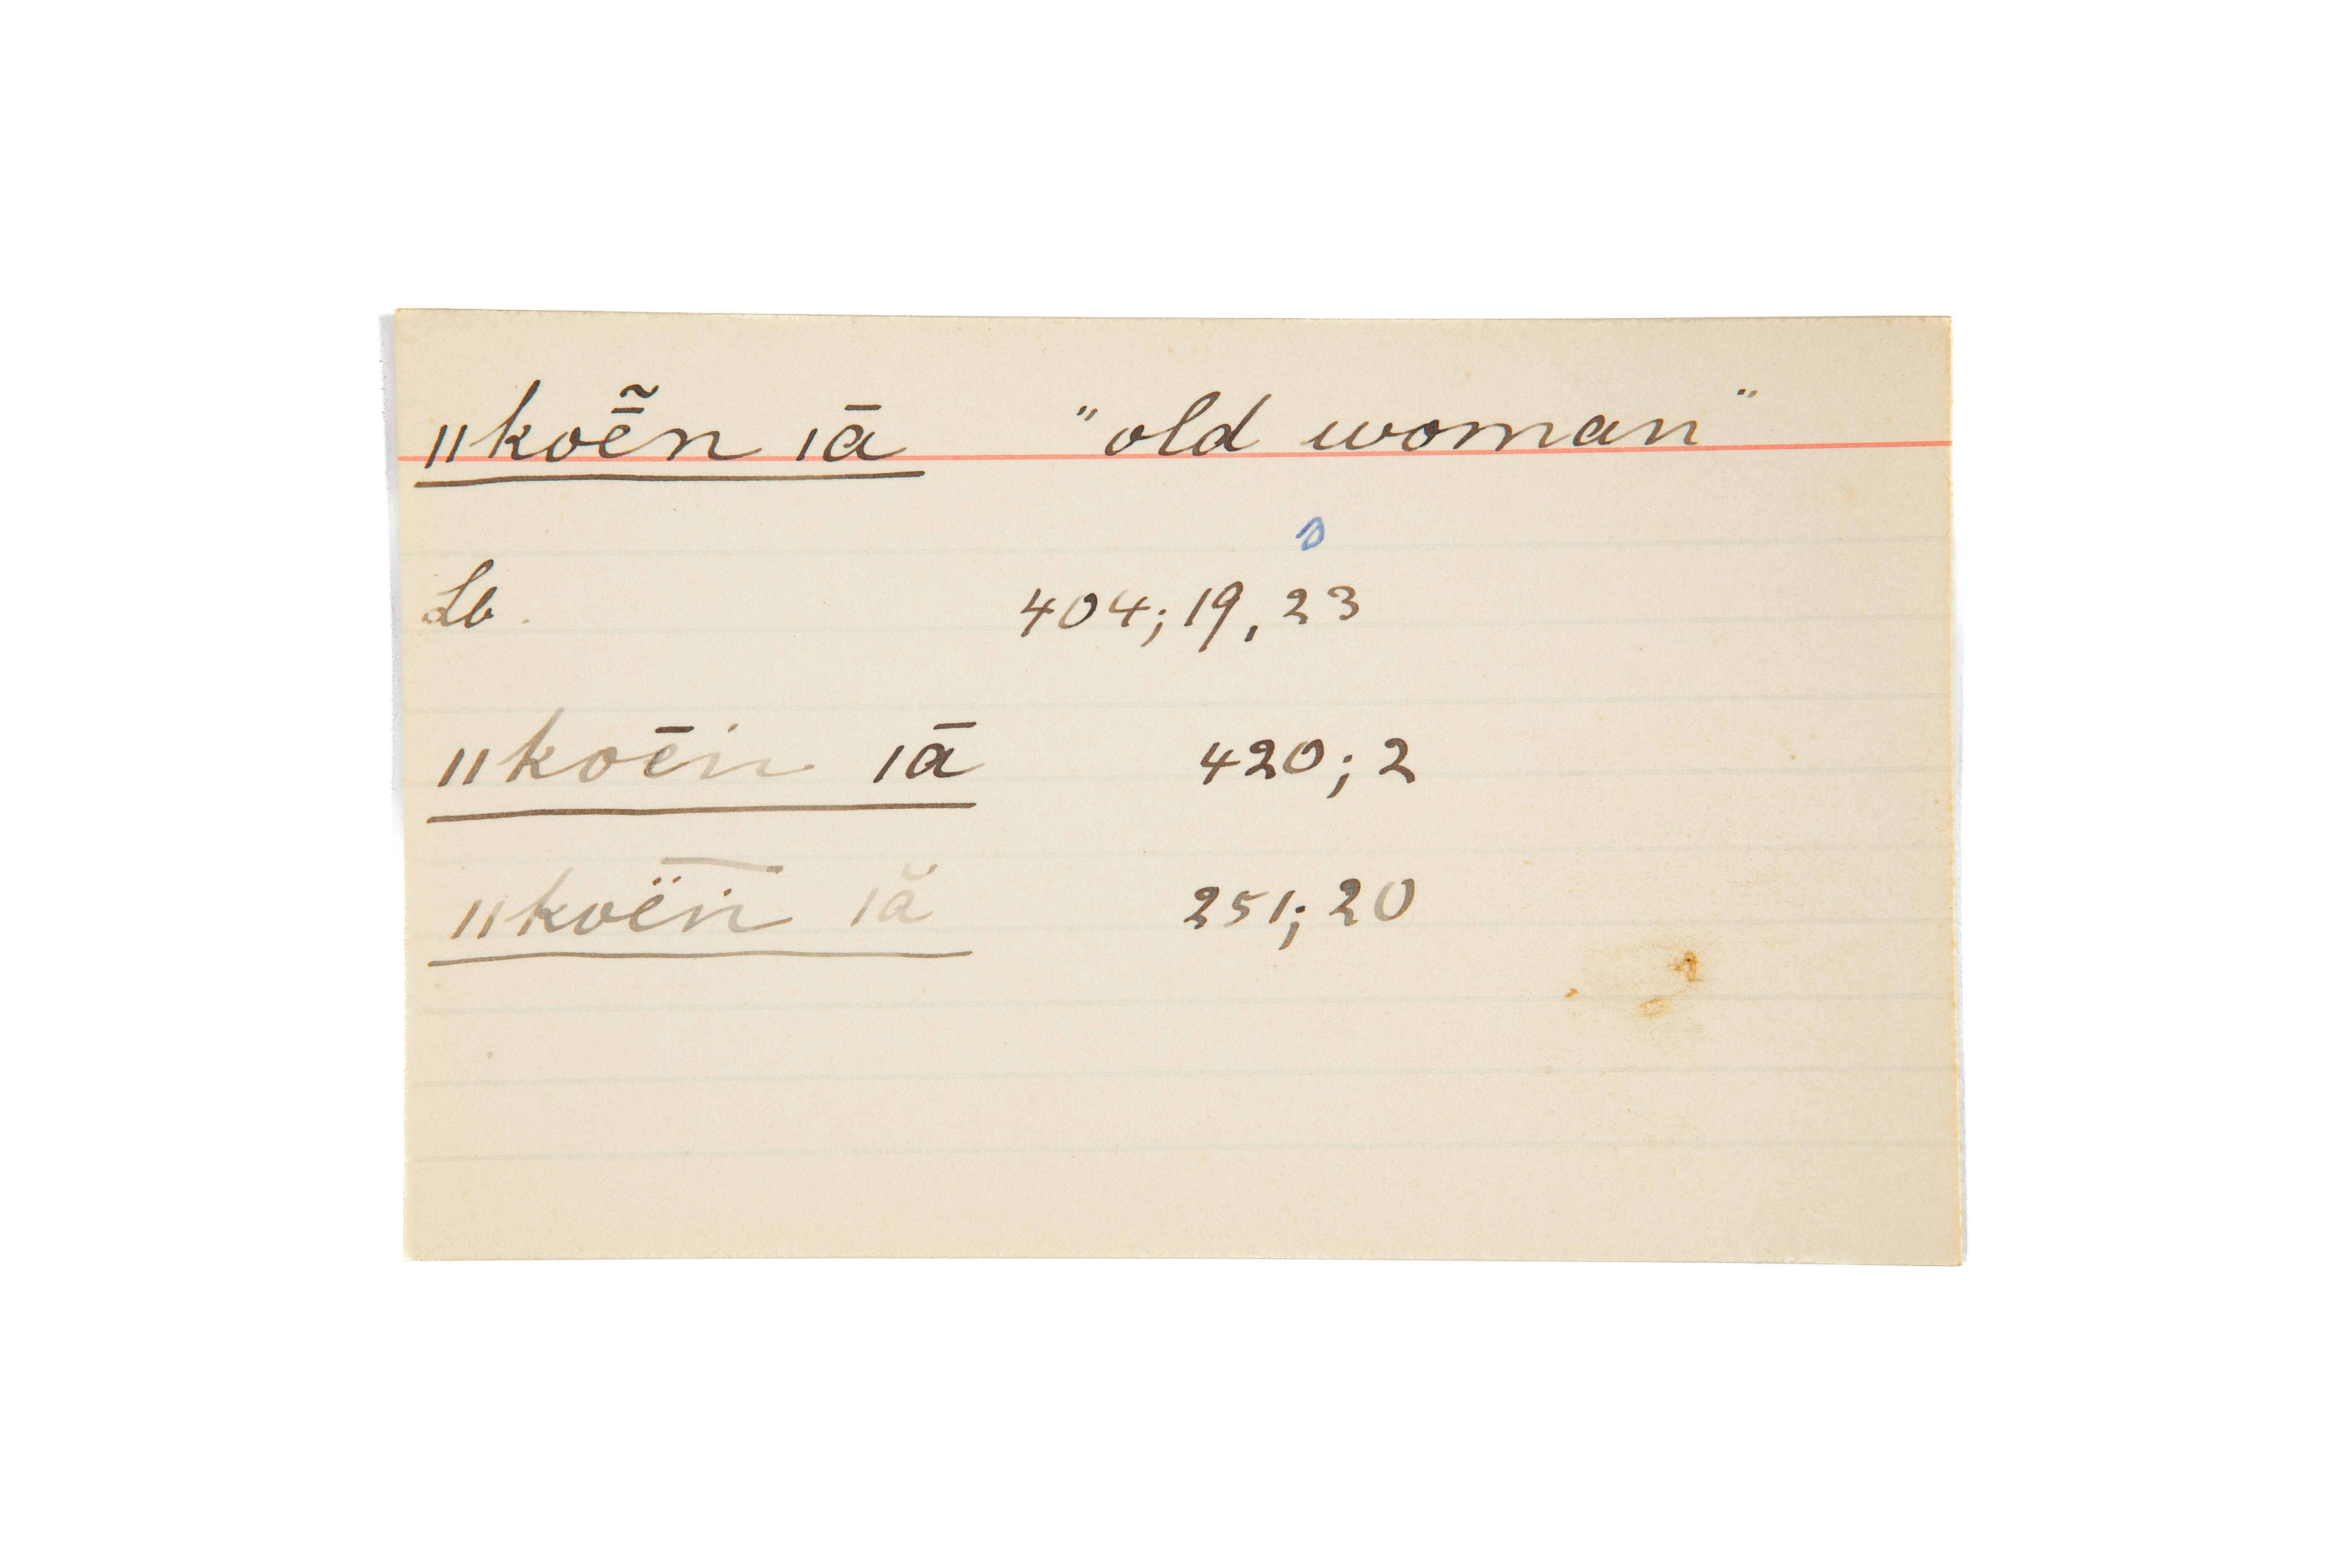 ǁkoē̃n ǀā "old woman"
Lb. 404; 19, 23
ǁkoēin ǀā 420; 2
ǁkoë̅i̅n ǀă 251; 20